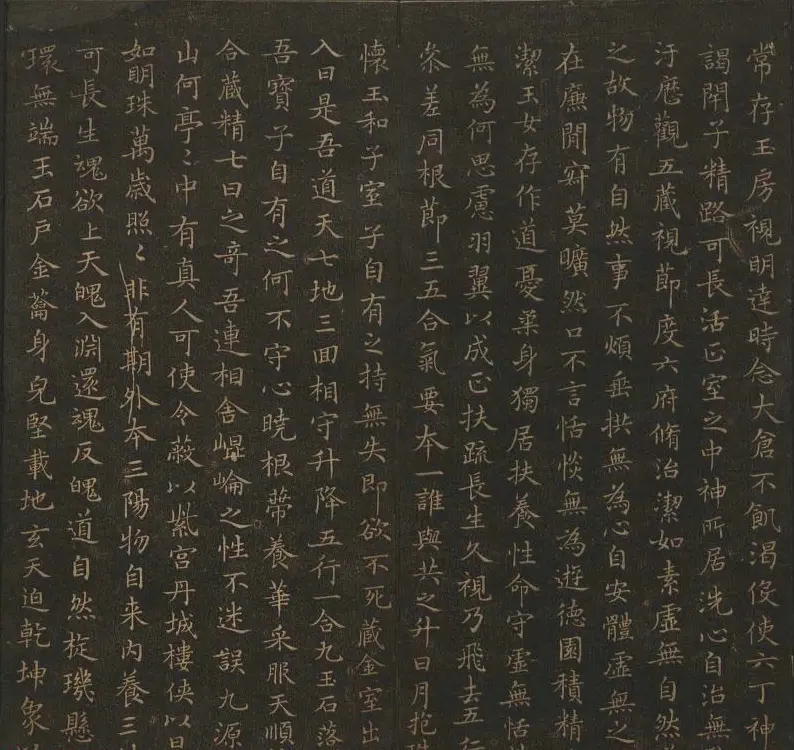 常存玉房視明達時念大倉不飢渴役使六丁神
謁閉子精路可長活正室之中神所居洗心自治無
汙歷觀五藏視節度六府脩治潔如素虛無自然
之故物有自然事不煩垂拱無為心自安體虛無之
在廉閒寂莫曠然口不言恬惔無為遊德園積精
潔玉女存作道憂柔身獨居扶養性命守虛無恬
無為何思慮羽翼以成正扶疏長生久視乃飛去五行
參差同根節三五合氣要本一誰與共之升日月抱珠
懷玉和子室子自有之持無失即欲不死藏金室出
入日是吾道天七地三回相守升降五行一合九玉石落
吾寶子自有之何不守心曉根蔕養華采服天順
合藏精七日之奇吾連相舍崐崘之性不迷誤九源
山何亭〻中有真人可使令蔽以紫宮丹城樓俠以日
如明珠萬歲照〻非有期外本三陽物自来内養三
可長生魂欲上天魄入淵還魂反魄道自然琁璣懸
環無端玉石戶金籥身皃堅載地玄天迫乾坤象